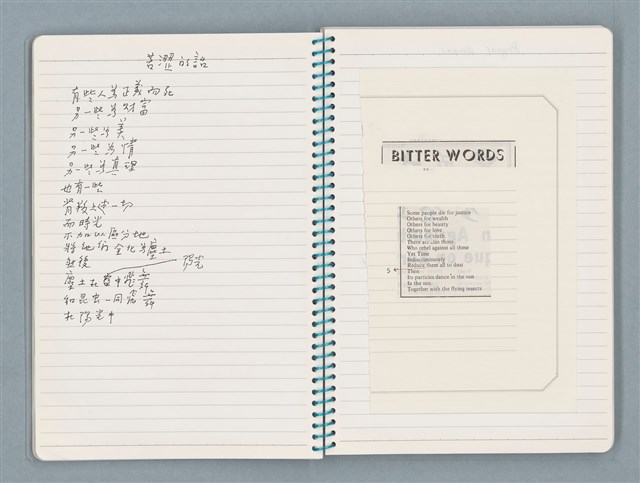 苦澀的話
有些人為正義而死
另一些為財富
另一些為美
另一些為情
另一些為真理
也有一些
背叛這一切
而時光
不加以區分地
將他們全化為塵土
然後
陽光
塵土在當中飛舞
和昆虫一同飛舞
在陽光中
BITTER WORDS
Some people die for justice
Others for wealth
Others for beauty
Others for love
Others for truth
There are also those
Who rebel against all these
Yet Time
Indiscriminately
Reduce them all to dust
Then
Its particles dance in the sun
In the sun
Together with the flying insects